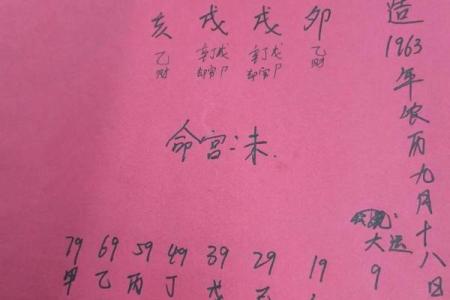 造 1963年农历九月十八日
亥 戌 戌 卯
乙 辛丁戊 辛丁戊 乙
财 却官P 却官P 财
命宫:未.
大运
79 69 59 49 39 29 19 9
甲 乙 丙 丁 戊